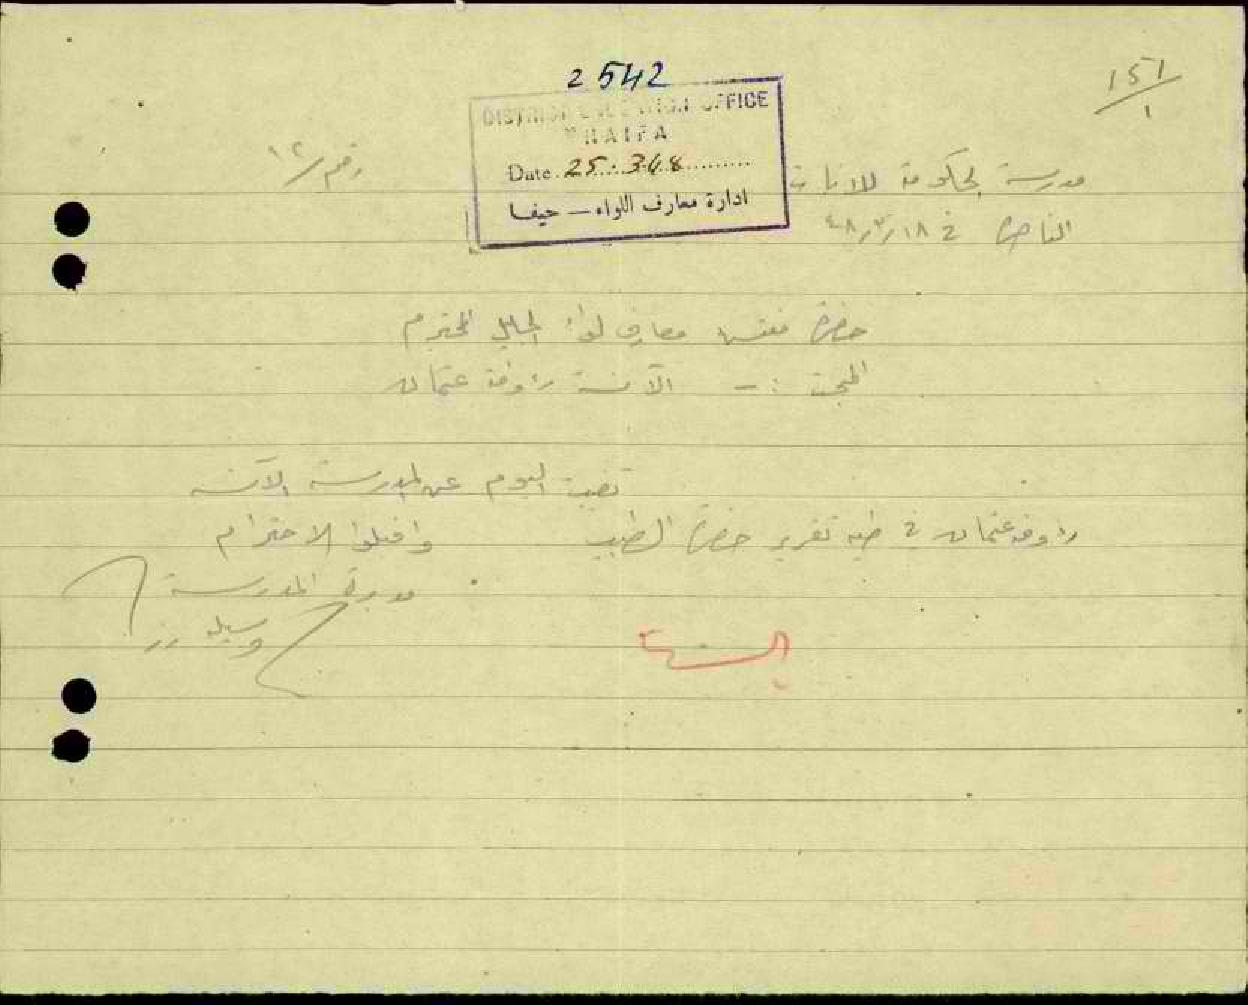 2542
151/1
DISTRICT EDUCATION OFFICE
HAIFA
Date 25.3.48
ادارة معارف اللواء - حيفا
رقم /١٢
مدرسة الحكومة للاناث
الناصرة في ١٨/٣/٤٨
حضرة مفتش معارف لواء الجليل المحترم
المبحث :- الآنسة رؤوفة عثمان
تغيبت اليوم عن المدرسة الآنسة
رؤوفة عثمان في طيه تقرير حضرة الطبيب واقبلوا الاحترام
مديرة المدرسة